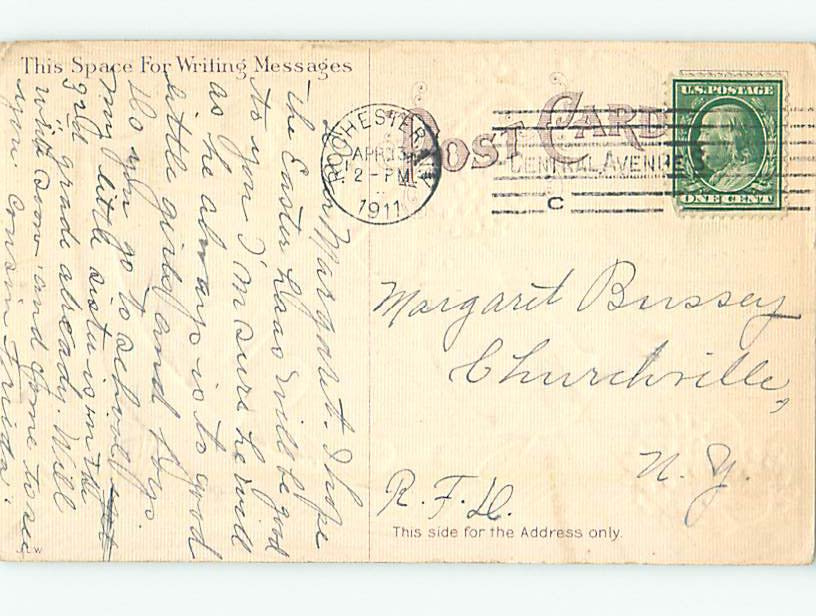 This Space For Writing Messages
Dear Margaret. I hope
the Easter Haas will be good
to you I'm sure he will
as he always is to good
little girls and boys.
Do you go to school yet
my little sister is in the
3rd grade already. Well
write soon and come to see
you Cousin Frieda.
POST CARD
ROCHESTER N.Y.
APR 13
2 - PM
1911
CENTRAL AVENUE
C
U.S. POSTAGE
ONE CENT
Margaret Bussey
Churchville,
N. Y.
R. F. D.
This side for the Address only.